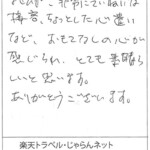 非常にていねいな
接客、ちょっとした心遣い
など、おもてなしの心が
感じられ、とても素晴ら
しいと思います。
ありがとうございます。
楽天トラベル・じゃらんネット